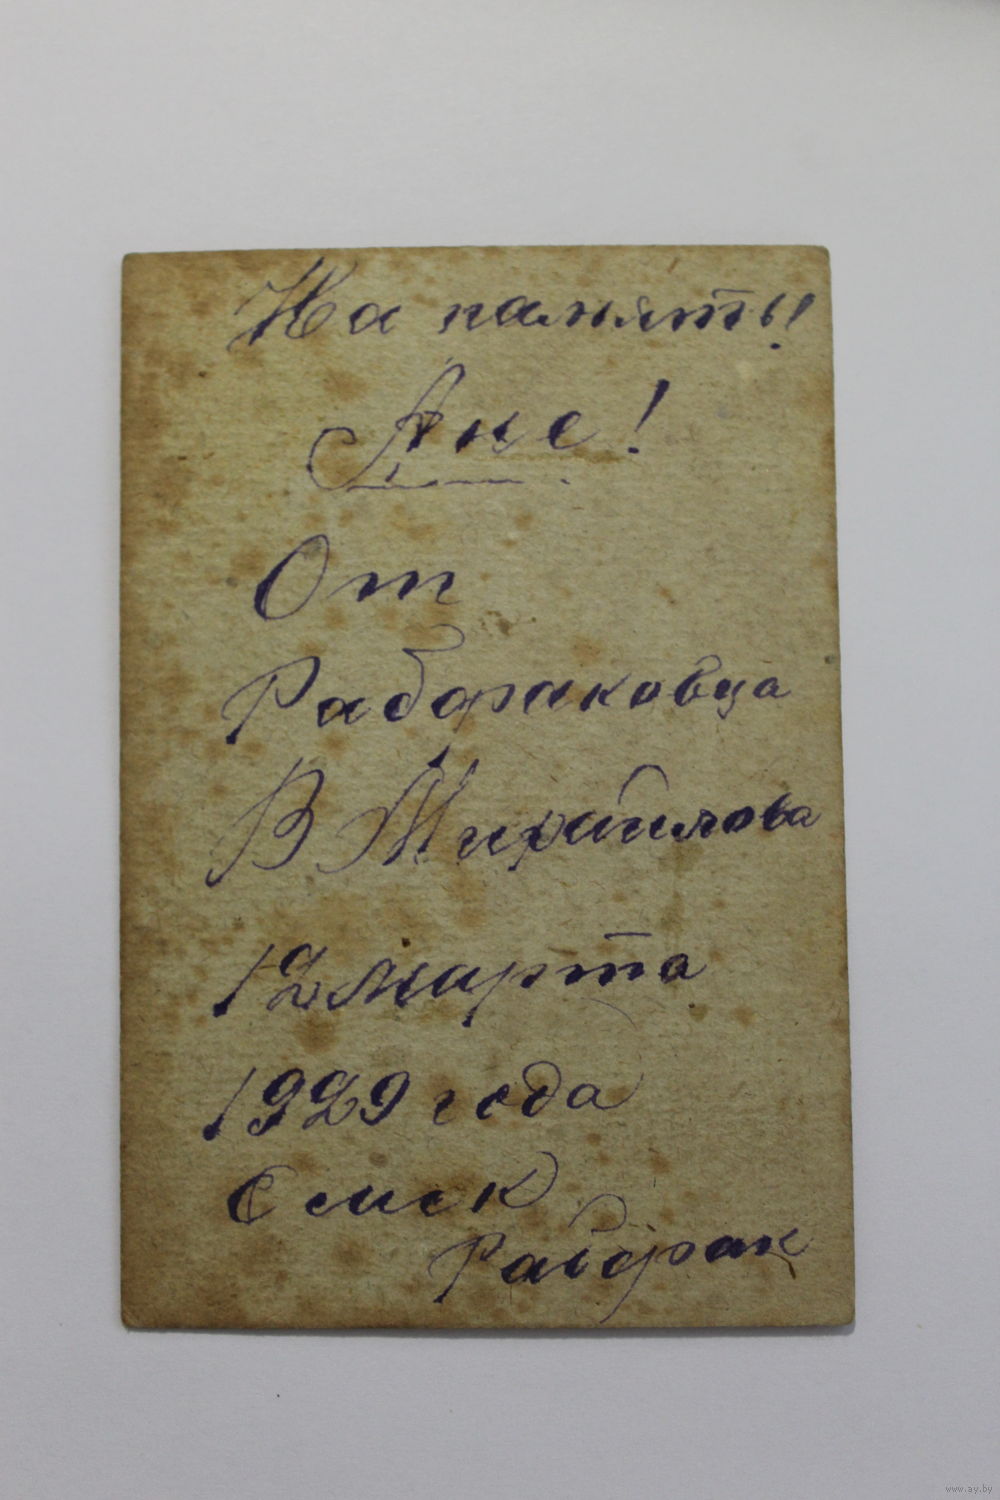 На память!
Ане!
От
Рабфаковца
В Михайлова
12 марта
1929 года
Омск
Рабфак
www.ay.by